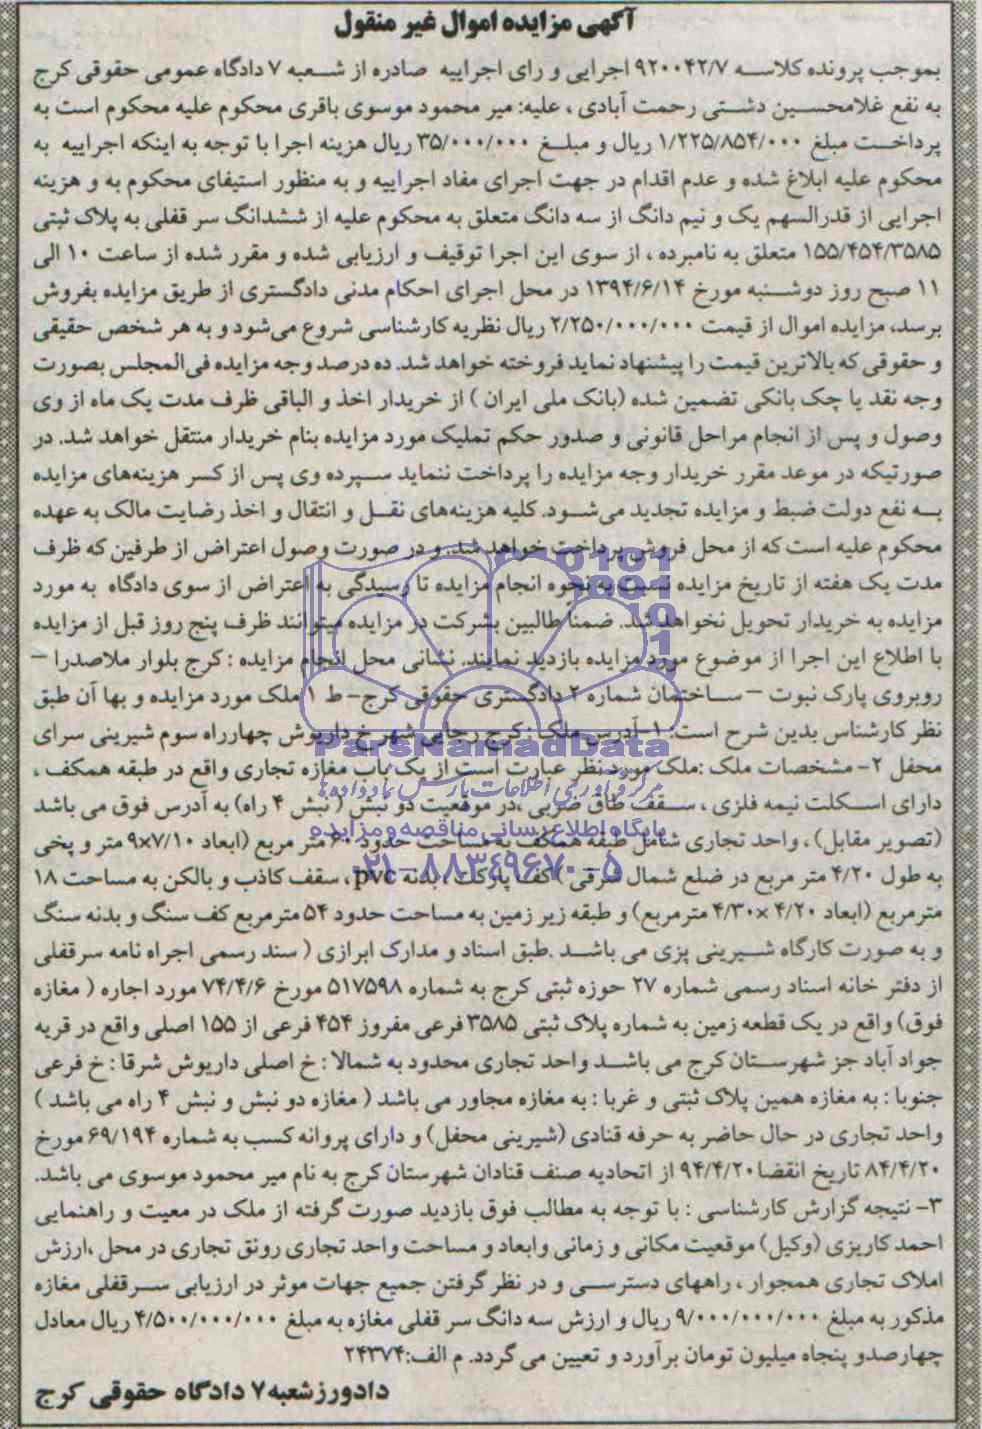 آگهی مزایده اموال غیر منقول
بموجب پرونده کلاسه ۹۲۰۰۴۲/۷ اجرایی و رای اجراییه صادره از شعبه ۷ دادگاه عمومی حقوقی کرج
به نفع غلامحسین دشتی رحمت آبادی ، علیه: میر محمود موسوی باقری محکوم علیه محکوم است به
پرداخت مبلغ ۱/۲۲۵/۸۵۴/۰۰۰ ریال و مبلغ ۳۵/۰۰۰/۰۰۰ ریال هزینه اجرا با توجه به اینکه اجراییه به
محکوم علیه ابلاغ شده و عدم اقدام در جهت اجرای مفاد اجراییه و به منظور استیفای محکوم به و هزینه
اجرایی از قدرالسهم یک و نیم دانگ از سه دانگ متعلق به محکوم علیه از ششدانگ سر قفلی به پلاک ثبتی
۱۵۵/۴۵۴/۳۵۸۵ متعلق به نامبرده ، از سوی این اجرا توقیف و ارزیابی شده و مقرر شده از ساعت ۱۰ الی
۱۱ صبح روز دوشنبه مورخ ۱۳۹۴/۶/۱۴ در محل اجرای احکام مدنی دادگستری از طریق مزایده بفروش
برسد، مزایده اموال از قیمت ۲/۲۵۰/۰۰۰/۰۰۰ ریال نظریه کارشناسی شروع می‌شود و به هر شخص حقیقی
و حقوقی که بالاترین قیمت را پیشنهاد نماید فروخته خواهد شد. ده درصد وجه مزایده فی‌المجلس بصورت
وجه نقد یا چک بانکی تضمین شده (بانک ملی ایران ) از خریدار اخذ و الباقی ظرف مدت یک ماه از وی
وصول و پس از انجام مراحل قانونی و صدور حکم تملیک مورد مزایده بنام خریدار منتقل خواهد شد. در
صورتیکه در موعد مقرر خریدار وجه مزایده را پرداخت ننماید سپرده وی پس از کسر هزینه‌های مزایده
به نفع دولت ضبط و مزایده تجدید می‌شود. کلیه هزینه‌های نقل و انتقال و اخذ رضایت مالک به عهده
محکوم علیه است که از محل فروش پرداخت خواهد شد. و در صورت وصول اعتراض از طرفین که ظرف
مدت یک هفته از تاریخ مزایده نسبت به نحوه انجام مزایده تا رسیدگی به اعتراض از سوی دادگاه به مورد
مزایده به خریدار تحویل نخواهد شد. ضمناً طالبین بشرکت در مزایده میتوانند ظرف پنج روز قبل از مزایده
با اطلاع این اجرا از موضوع مورد مزایده بازدید نمایند. نشانی محل انجام مزایده : کرج بلوار ملاصدرا –
روبروی پارک نبوت – ساختمان شماره ۲ دادگستری حقوقی کرج- ط ۱ ملک مورد مزایده و بها آن طبق
نظر کارشناس بدین شرح است: ۱-آدرس ملک : کرج رجایی شهر خ داریوش چهارراه سوم شیرینی سرای
محفل ۲- مشخصات ملک :ملک مورد نظر عبارت است از یک باب مغازه تجاری واقع در طبقه همکف ،
دارای اسکلت نیمه فلزی ، سقف طاق ضربی ،در موقعیت دو نبش ( نبش ۴ راه) به آدرس فوق می باشد
(تصویر مقابل) ، واحد تجاری شامل طبقه همکف به مساحت حدود ۶۰ متر مربع (ابعاد ۹×۷/۱۰ متر و پخی
به طول ۴/۲۰ متر مربع در ضلع شمال شرقی ) کف پارکت ، بدنه pvc ، سقف کاذب و بالکن به مساحت ۱۸
مترمربع (ابعاد ۴/۲۰ ×۴/۳۰ مترمربع) و طبقه زیر زمین به مساحت حدود ۵۴ مترمربع کف سنگ و بدنه سنگ
و به صورت کارگاه شیرینی پزی می باشد .طبق اسناد و مدارک ابرازی ( سند رسمی اجراه نامه سرقفلی
از دفتر خانه اسناد رسمی شماره ۲۷ حوزه ثبتی کرج به شماره ۵۱۷۵۹۸ مورخ ۷۴/۴/۶ مورد اجاره ( مغازه
فوق) واقع در یک قطعه زمین به شماره پلاک ثبتی ۳۵۸۵ فرعی مفروز ۴۵۴ فرعی از ۱۵۵ اصلی واقع در قریه
جواد آباد جز شهرستان کرج می باشد واحد تجاری محدود به شمالا : خ اصلی داریوش شرقا : خ فرعی
جنوبا : به مغازه همین پلاک ثبتی و غربا : به مغازه مجاور می باشد ( مغازه دو نبش و نبش ۴ راه می باشد )
واحد تجاری در حال حاضر به حرفه قنادی (شیرینی محفل) و دارای پروانه کسب به شماره ۶۹/۱۹۴ مورخ
۸۴/۴/۲۰ تاریخ انقضا ۹۴/۴/۲۰ از اتحادیه صنف قنادان شهرستان کرج به نام میر محمود موسوی می باشد.
۳- نتیجه گزارش کارشناسی : با توجه به مطالب فوق بازدید صورت گرفته از ملک در معیت و راهنمایی
احمد کاریزی (وکیل) موقعیت مکانی و زمانی وابعاد و مساحت واحد تجاری رونق تجاری در محل ،ارزش
املاک تجاری همجوار ، راههای دسترسی و در نظر گرفتن جمیع جهات موثر در ارزیابی سرقفلی مغازه
مذکور به مبلغ ۹/۰۰۰/۰۰۰/۰۰۰ ریال و ارزش سه دانگ سر قفلی مغازه به مبلغ ۴/۵۰۰/۰۰۰/۰۰۰ ریال معادل
چهارصدو پنجاه میلیون تومان برآورد و تعیین می گردد. م الف:۲۴۳۷۴
دادورز شعبه ۷ دادگاه حقوقی کرج
ParsNamadData
مرکز فرآوری اطلاعات پارس نماد داده‌ها
پایگاه اطلاع رسانی مناقصه و مزایده
۰۲۱-۸۸۳۴۹۶۷۰-۵